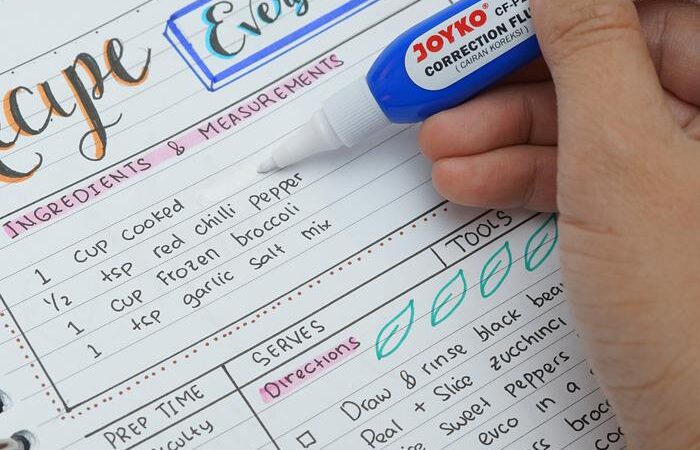 Recipe
Every
JOYKO®
CORRECTION FLU
(CAIRAN KOREKSI)
INGREDIENTS & MEASUREMENTS
1 cup cooked
1/2 tsp red chilli pepper
1 cup frozen broccoli
1 tsp garlic salt mix
TOOLS
SERVES
PREP TIME
Directions
Draw & rinse black
Peal + Slice zucchinci
sweet peppers
evco in a